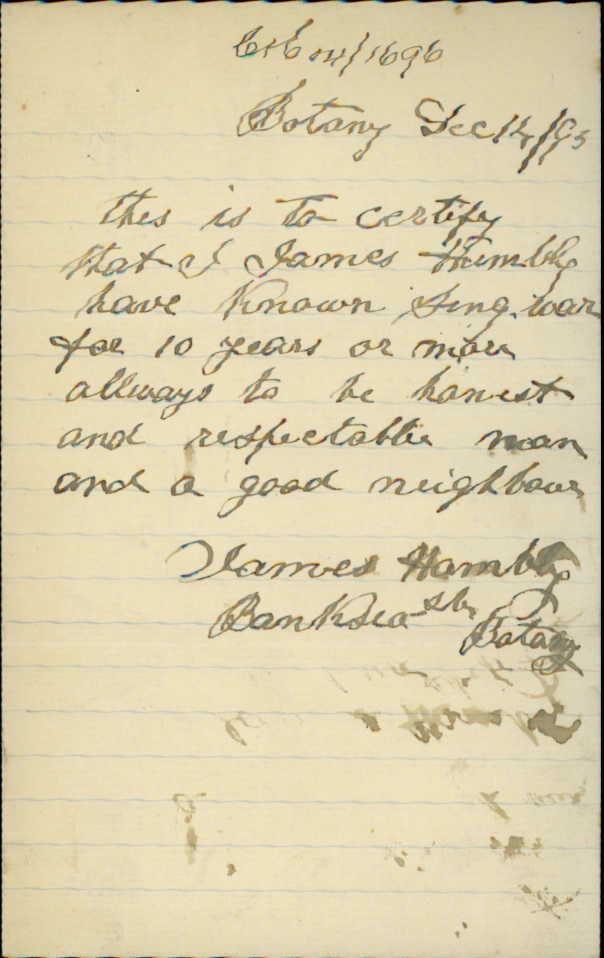 Botany Dec 14/95
this is to certify
that I James Hambly
have Known Sing war
for 10 years or more
allways to be honest
and respectable man
and a good neighbour
James Hambly
Banksia St
Botany